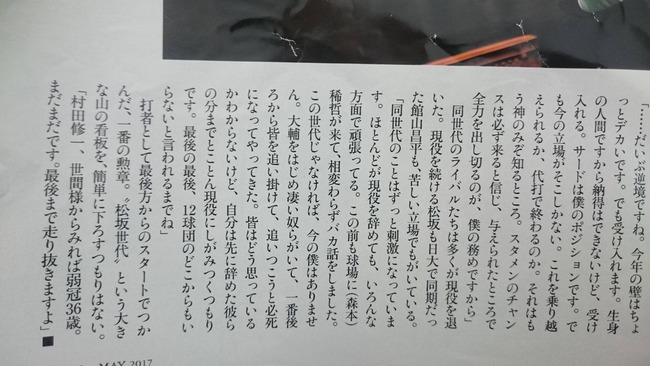 「……だいぶ逆境ですね。今年の壁はちょ
っとデカいです。でも受け入れます。生身
の人間ですから納得はできないけど、受け
入れる。サードは僕のポジションです。で
も今の立場がそこしかない。これを乗り越
えられるか、代打で終わるのか。それはも
う神のみぞ知るところ。スタメンのチャン
スは必ず来ると信じ、与えられたところで
全力を出し切るのが、僕の務めですから」
同世代のライバルたちは多くが現役を退
いた。現役を続ける松坂も日大で同期だっ
た館山昌平も苦しい立場でもがいている。
「同世代のことはずっと刺激になっていま
す。ほとんどが現役を辞めても、いろんな
方面で頑張ってる。この前も球場に（森本）
稀哲が来て、相変わらずバカ話をしました。
この世代じゃなければ、今の僕はありませ
ん。大輔をはじめ凄い奴らがいて、一番後
ろから皆を追い掛けて、追いつこうと必死
になってやってきた。皆はどう思っている
かわからないけど、自分は先に辞めた彼ら
の分までとことん現役にしがみつくつもり
です。最後の最後、12球団のどこからもい
らないと言われるまでね」
打者として最後方からのスタートでつか
んだ、一番の勲章。〝松坂世代〟という大き
な山の看板を、簡単に下ろすつもりはない。
「村田修一、世間様からみれば弱冠36歳。
まだまだです。最後まで走り抜きますよ」■
MAY 2017